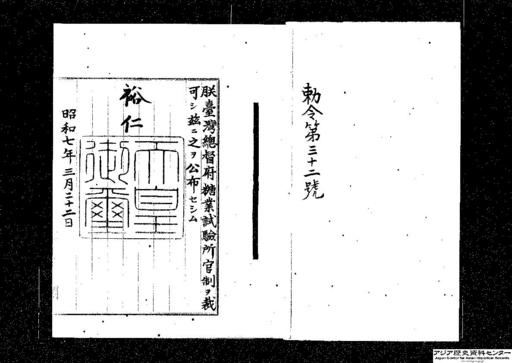 勅令第三十二號
朕臺灣總督府糖業試驗所官制ヲ裁
可シ玆ニ之ヲ公布セシム
裕仁
天皇
御璽
昭和七年三月二十二日
アジア歴史資料センター
Japan Center for Asian Historical Records